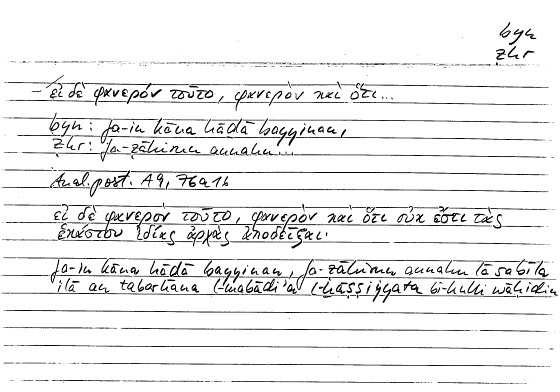 byn
ẓhr
– εἰ δὲ φανερὸν τοῦτο, φανερὸν καὶ ὅτι...
byn: fa-in kāna hāḏā bayyinan,
ẓhr: fa-ẓāhirun annahu...
Anal. post. A 9, 76a16
εἰ δὲ φανερὸν τοῦτο, φανερὸν καὶ ὅτι οὐκ ἔστι τὰς
ἑκάστου ἰδίας ἀρχὰς ἀποδεῖξαι·
fa-in kāna hāḏā bayyinan, fa-ẓāhirun annahu lā sabīla
ilā an tubarhana l-mabādiʾu l-ḫāṣṣiyyatu bi-kulli wāḥidin